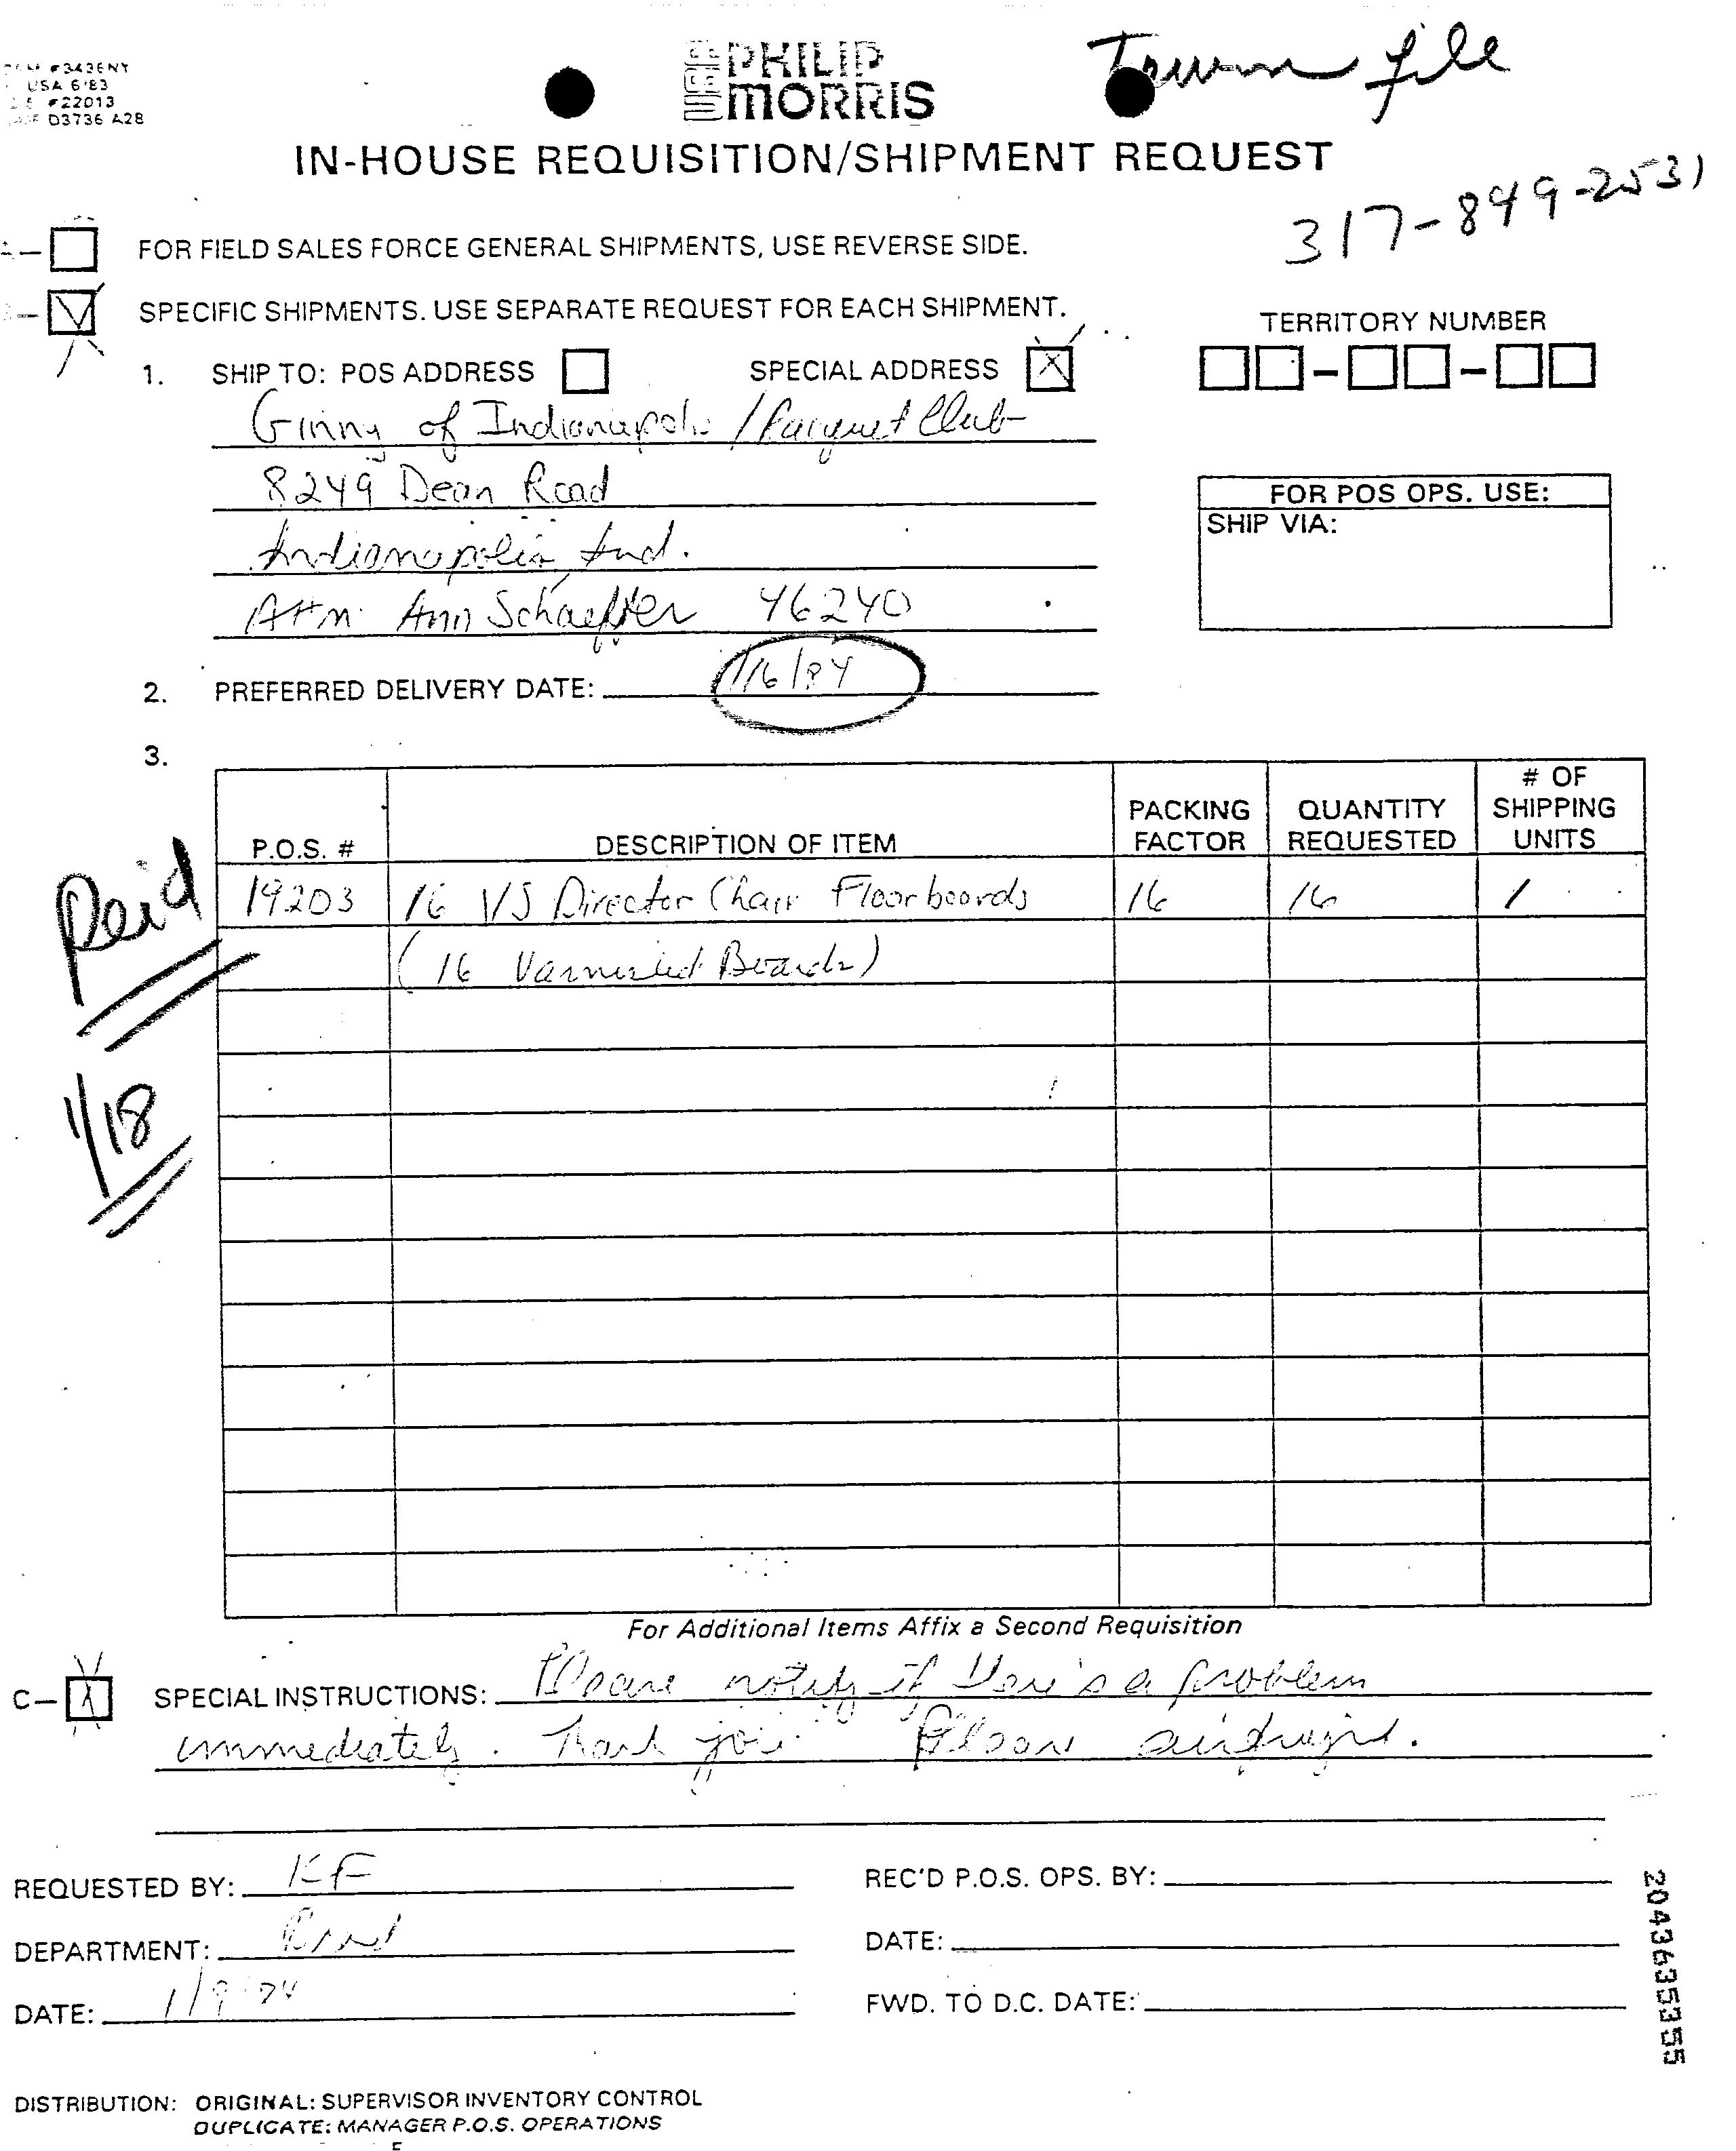 #3436NY
USA 6/83
#22013
D3736 A28
USA PHILIP
MORRIS
file
IN-HOUSE REQUISITION/SHIPMENT REQUEST
317-849-2531
FOR FIELD SALES FORCE GENERAL SHIPMENTS, USE REVERSE SIDE.
SPECIFIC SHIPMENTS. USE SEPARATE REQUEST FOR EACH SHIPMENT.
TERRITORY NUMBER
1. SHIP TO: POS ADDRESS SPECIAL ADDRESS
Ginny of Indianapolis / Racquet Club
8249 Dean Road
FOR POS OPS. USE:
SHIP VIA:
Indianapolis, Ind.
Attn: Ann Schaeffer 46240
2. PREFERRED DELIVERY DATE: 1/16/84
3.
P.O.S. # DESCRIPTION OF ITEM PACKING FACTOR QUANTITY REQUESTED # OF SHIPPING UNITS
19203 16 VS Director Chair Floorboards 16 16 1
(16 Varnished Boards)
1/18
For Additional Items Affix a Second Requisition
C- SPECIAL INSTRUCTIONS: Please notify if there's a problem
immediately. Thank you. Please airfreight.
REQUESTED BY: KF REC'D P.O.S. OPS. BY:
DEPARTMENT: DATE:
DATE: 1/9/84 FWD. TO D.C. DATE:
2043635355
DISTRIBUTION: ORIGINAL: SUPERVISOR INVENTORY CONTROL
DUPLICATE: MANAGER P.O.S. OPERATIONS